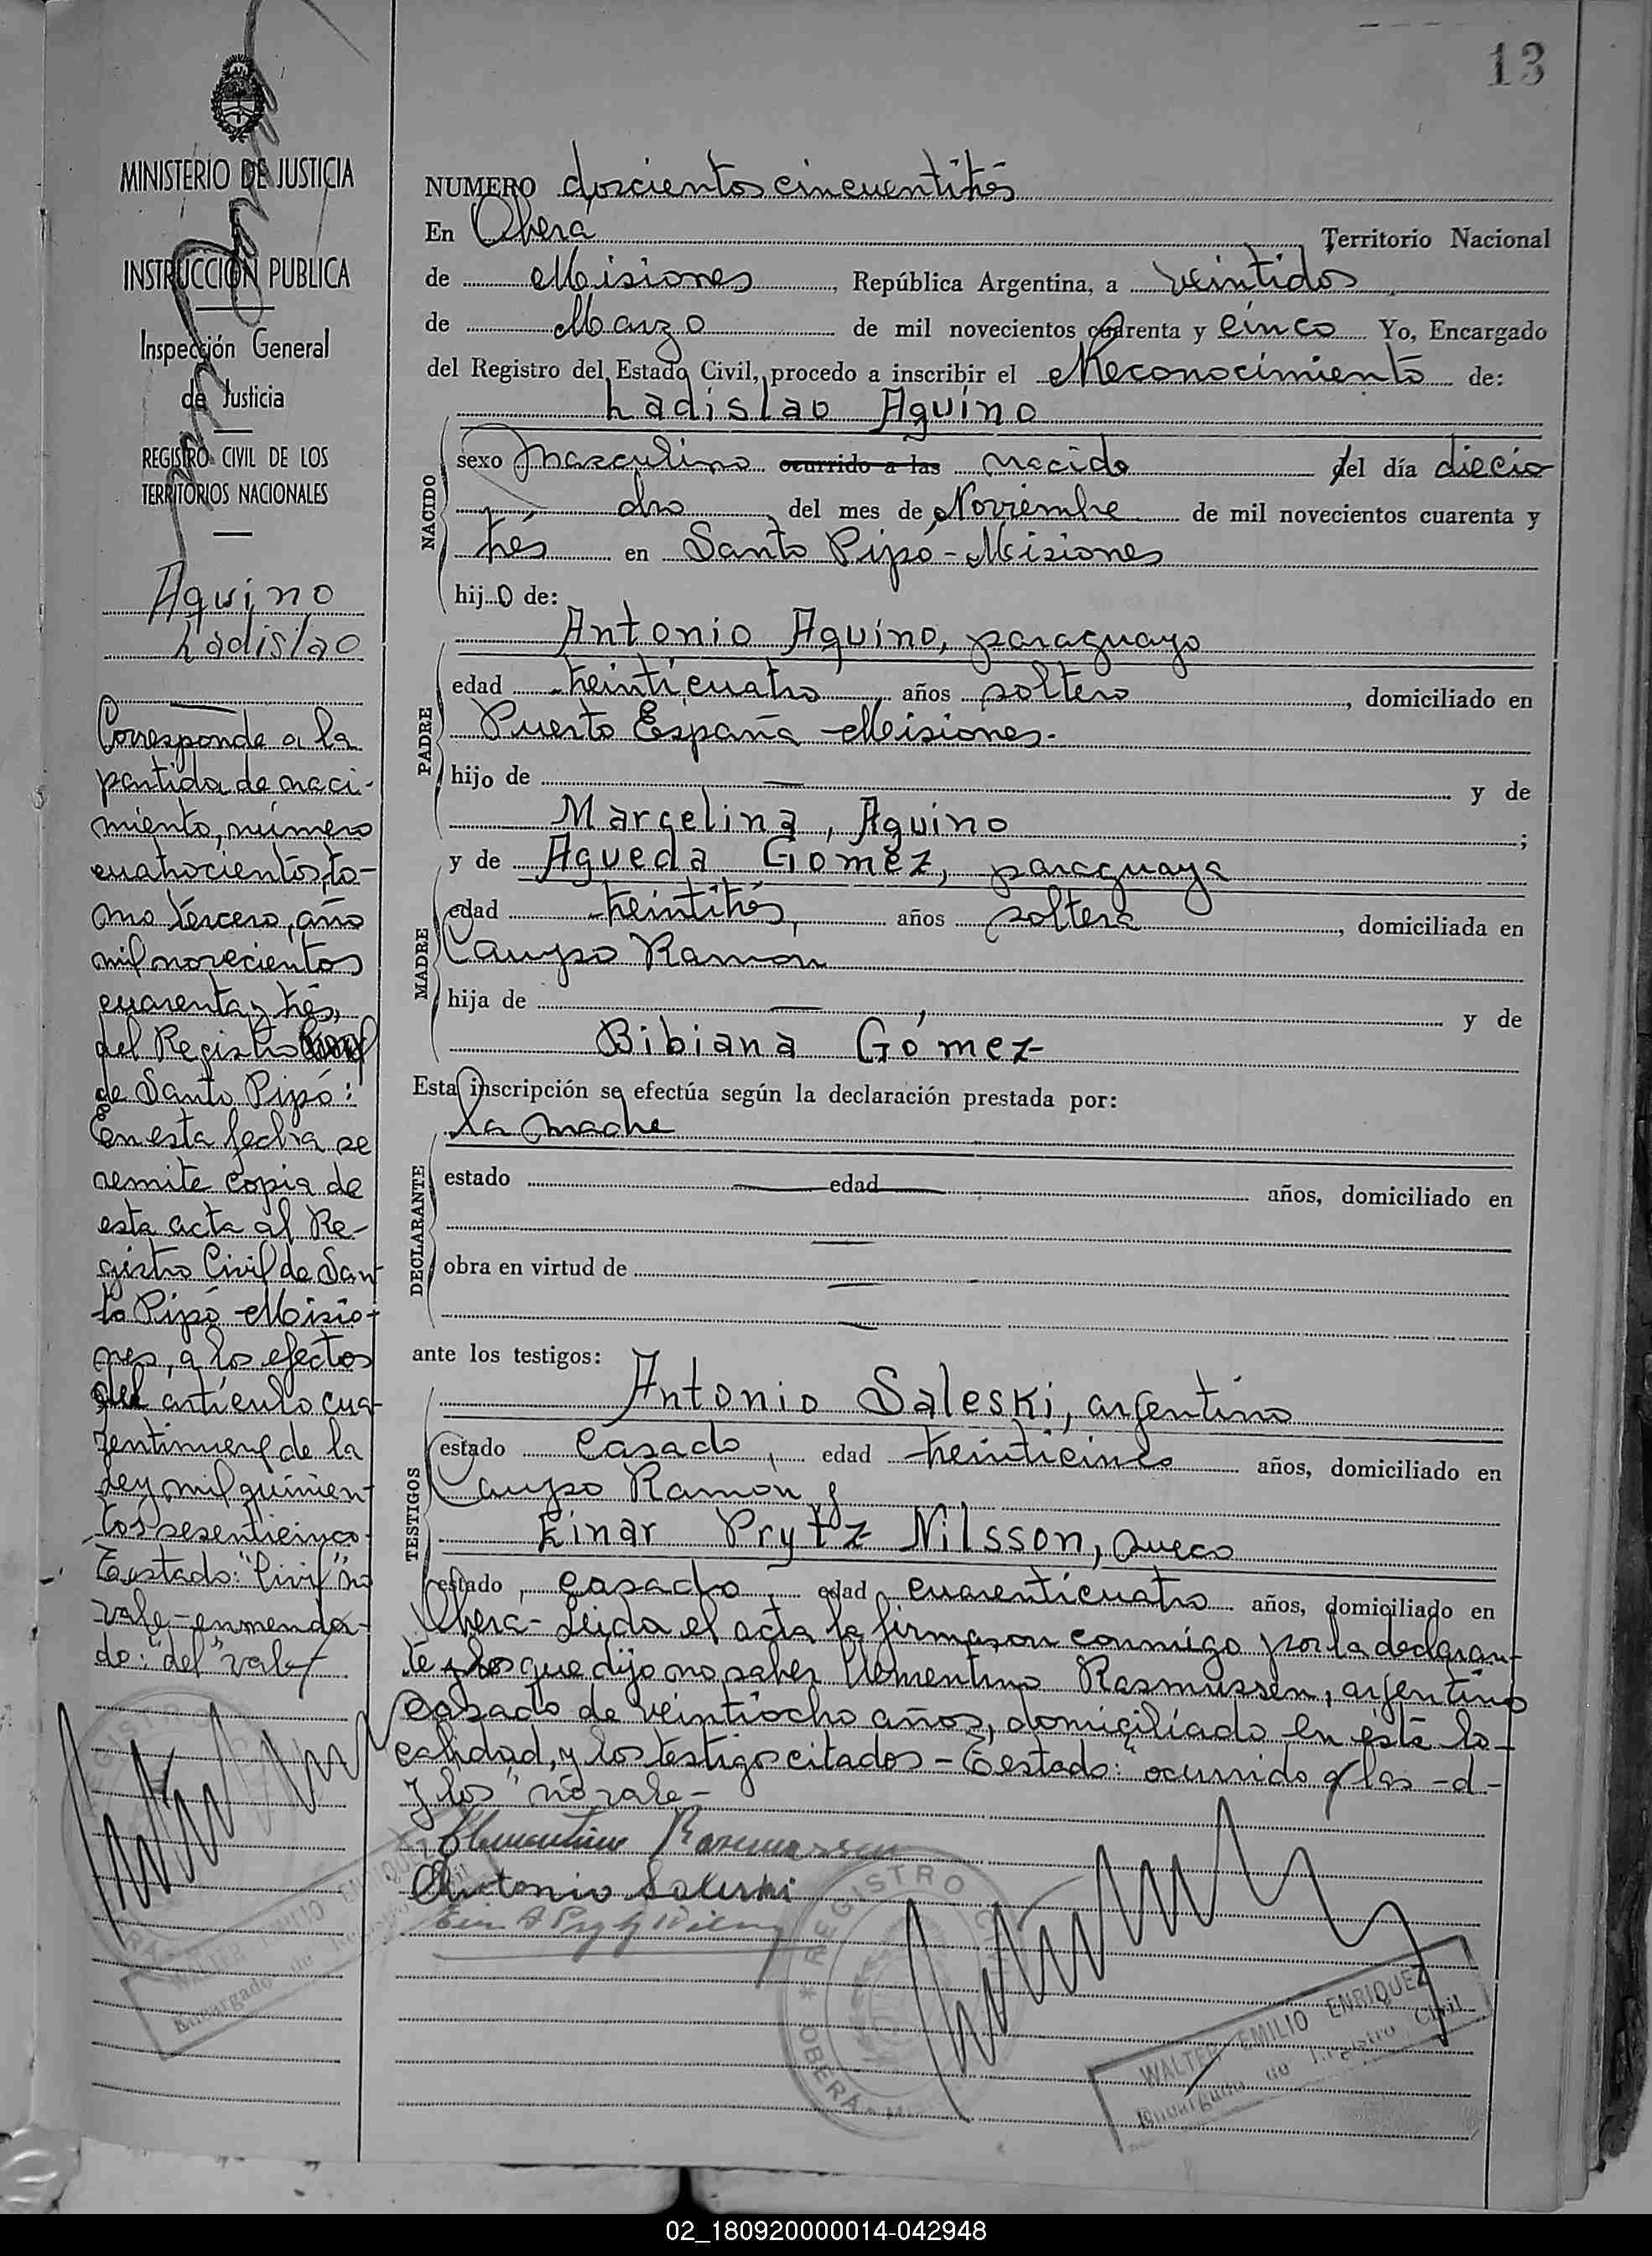 13
MINISTERIO DE JUSTICIA
E
INSTRUCCIÓN PUBLICA
Inspección General
de Justicia
REGISTRO CIVIL DE LOS
TERRITORIOS NACIONALES
Aquino
Ladislao
Corresponde a la
partida de naci-
miento, número
cuatrocientos, to-
mo tercero, año
mil novecientos
cuarenta y trés,
del Registro Civil
de Santo Pipó:
En esta fecha se
remite copia de
esta acta al Re-
gistro Civil de San
to Pipó Misio-
nes, a los efectos
del artículo cua-
rentinueve de la
Ley mil quinien
tos sesenticinco.
Testado: "Civil" no
vale - enmenda-
do: "del" vale
NUMERO doscientos cincuentitrés
En Oberá, Territorio Nacional
de Misiones, República Argentina, a veintidos
de Marzo de mil novecientos cuarenta y cinco Yo, Encargado
del Registro del Estado Civil, procedo a inscribir el Reconocimiento de:
Ladislao Aquino
NACIDO
sexo masculino ocurrido a las nacido del día diecio
cho del mes de Noviembre de mil novecientos cuarenta y
trés en Santo Pipó - Misiones
hijo de:
PADRE
Antonio Aquino, paraguayo
edad treinticuatro años soltero, domiciliado en
Puerto España - Misiones.
hijo de — y de
Marcelina, Aquino;
MADRE
y de Agueda Gomez, paraguaya
edad treintitrés, años soltera, domiciliada en
Campo Ramon
hija de — y de
Bibiana Gómez
Esta inscripción se efectúa según la declaración prestada por:
DECLARANTE
la madre
estado — edad — años, domiciliado en
—
obra en virtud de —
—
ante los testigos:
TESTIGOS
Antonio Saleski, argentino
estado casado, edad treinticinco años, domiciliado en
Campo Ramón y
Einar Prytz Nilsson, sueco
estado casado edad cuarenticuatro años, domiciliado en
Oberá - Leida el acta la firmaron conmigo por la declaran-
te y los que dijo no saber Clementino Rasmussen, argentino
casado de veintiocho años, domiciliado en ésta lo-
calidad, y los testigos citados - Testado: "ocurrido a las - d -
y los" no vale -
Clementino Rasmussen
Antonio Saleski
REGISTRO CIVIL
* OBERÁ - Misiones
WALTER EMILIO ENRIQUEZ
Encargado de Registro Civil
WALTER EMILIO ENRIQUEZ
Encargado de Registro Civil
02_180920000014-042948